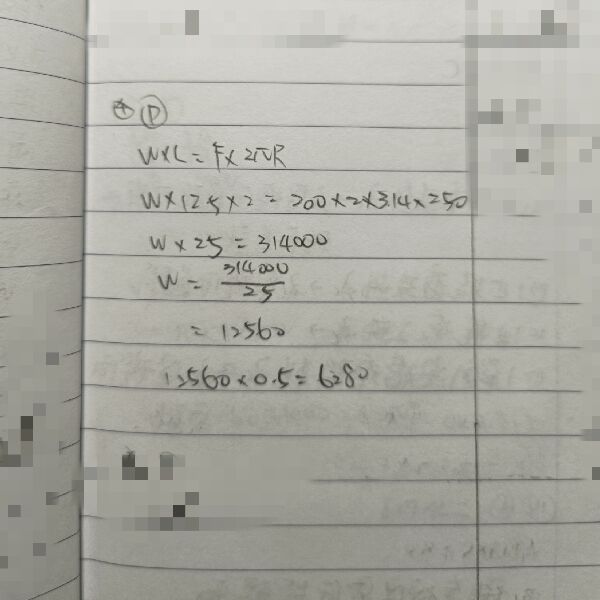 ④ ⑰
W×L = F×2πR
W×12.5×2 = 200×2×3.14×250
W × 25 = 314000
W = 314000/25
= 12560
12560×0.5 = 6280